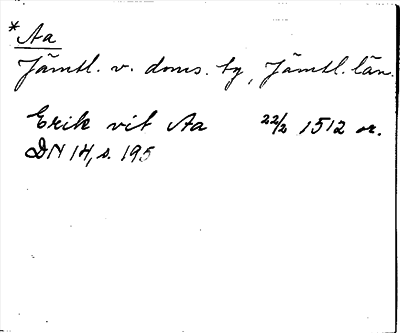 *Aa
Jämtl. v. doms. tg, Jämtl. län.
Erik vit Aa 22/2 1512 or.
DN 14, s. 195